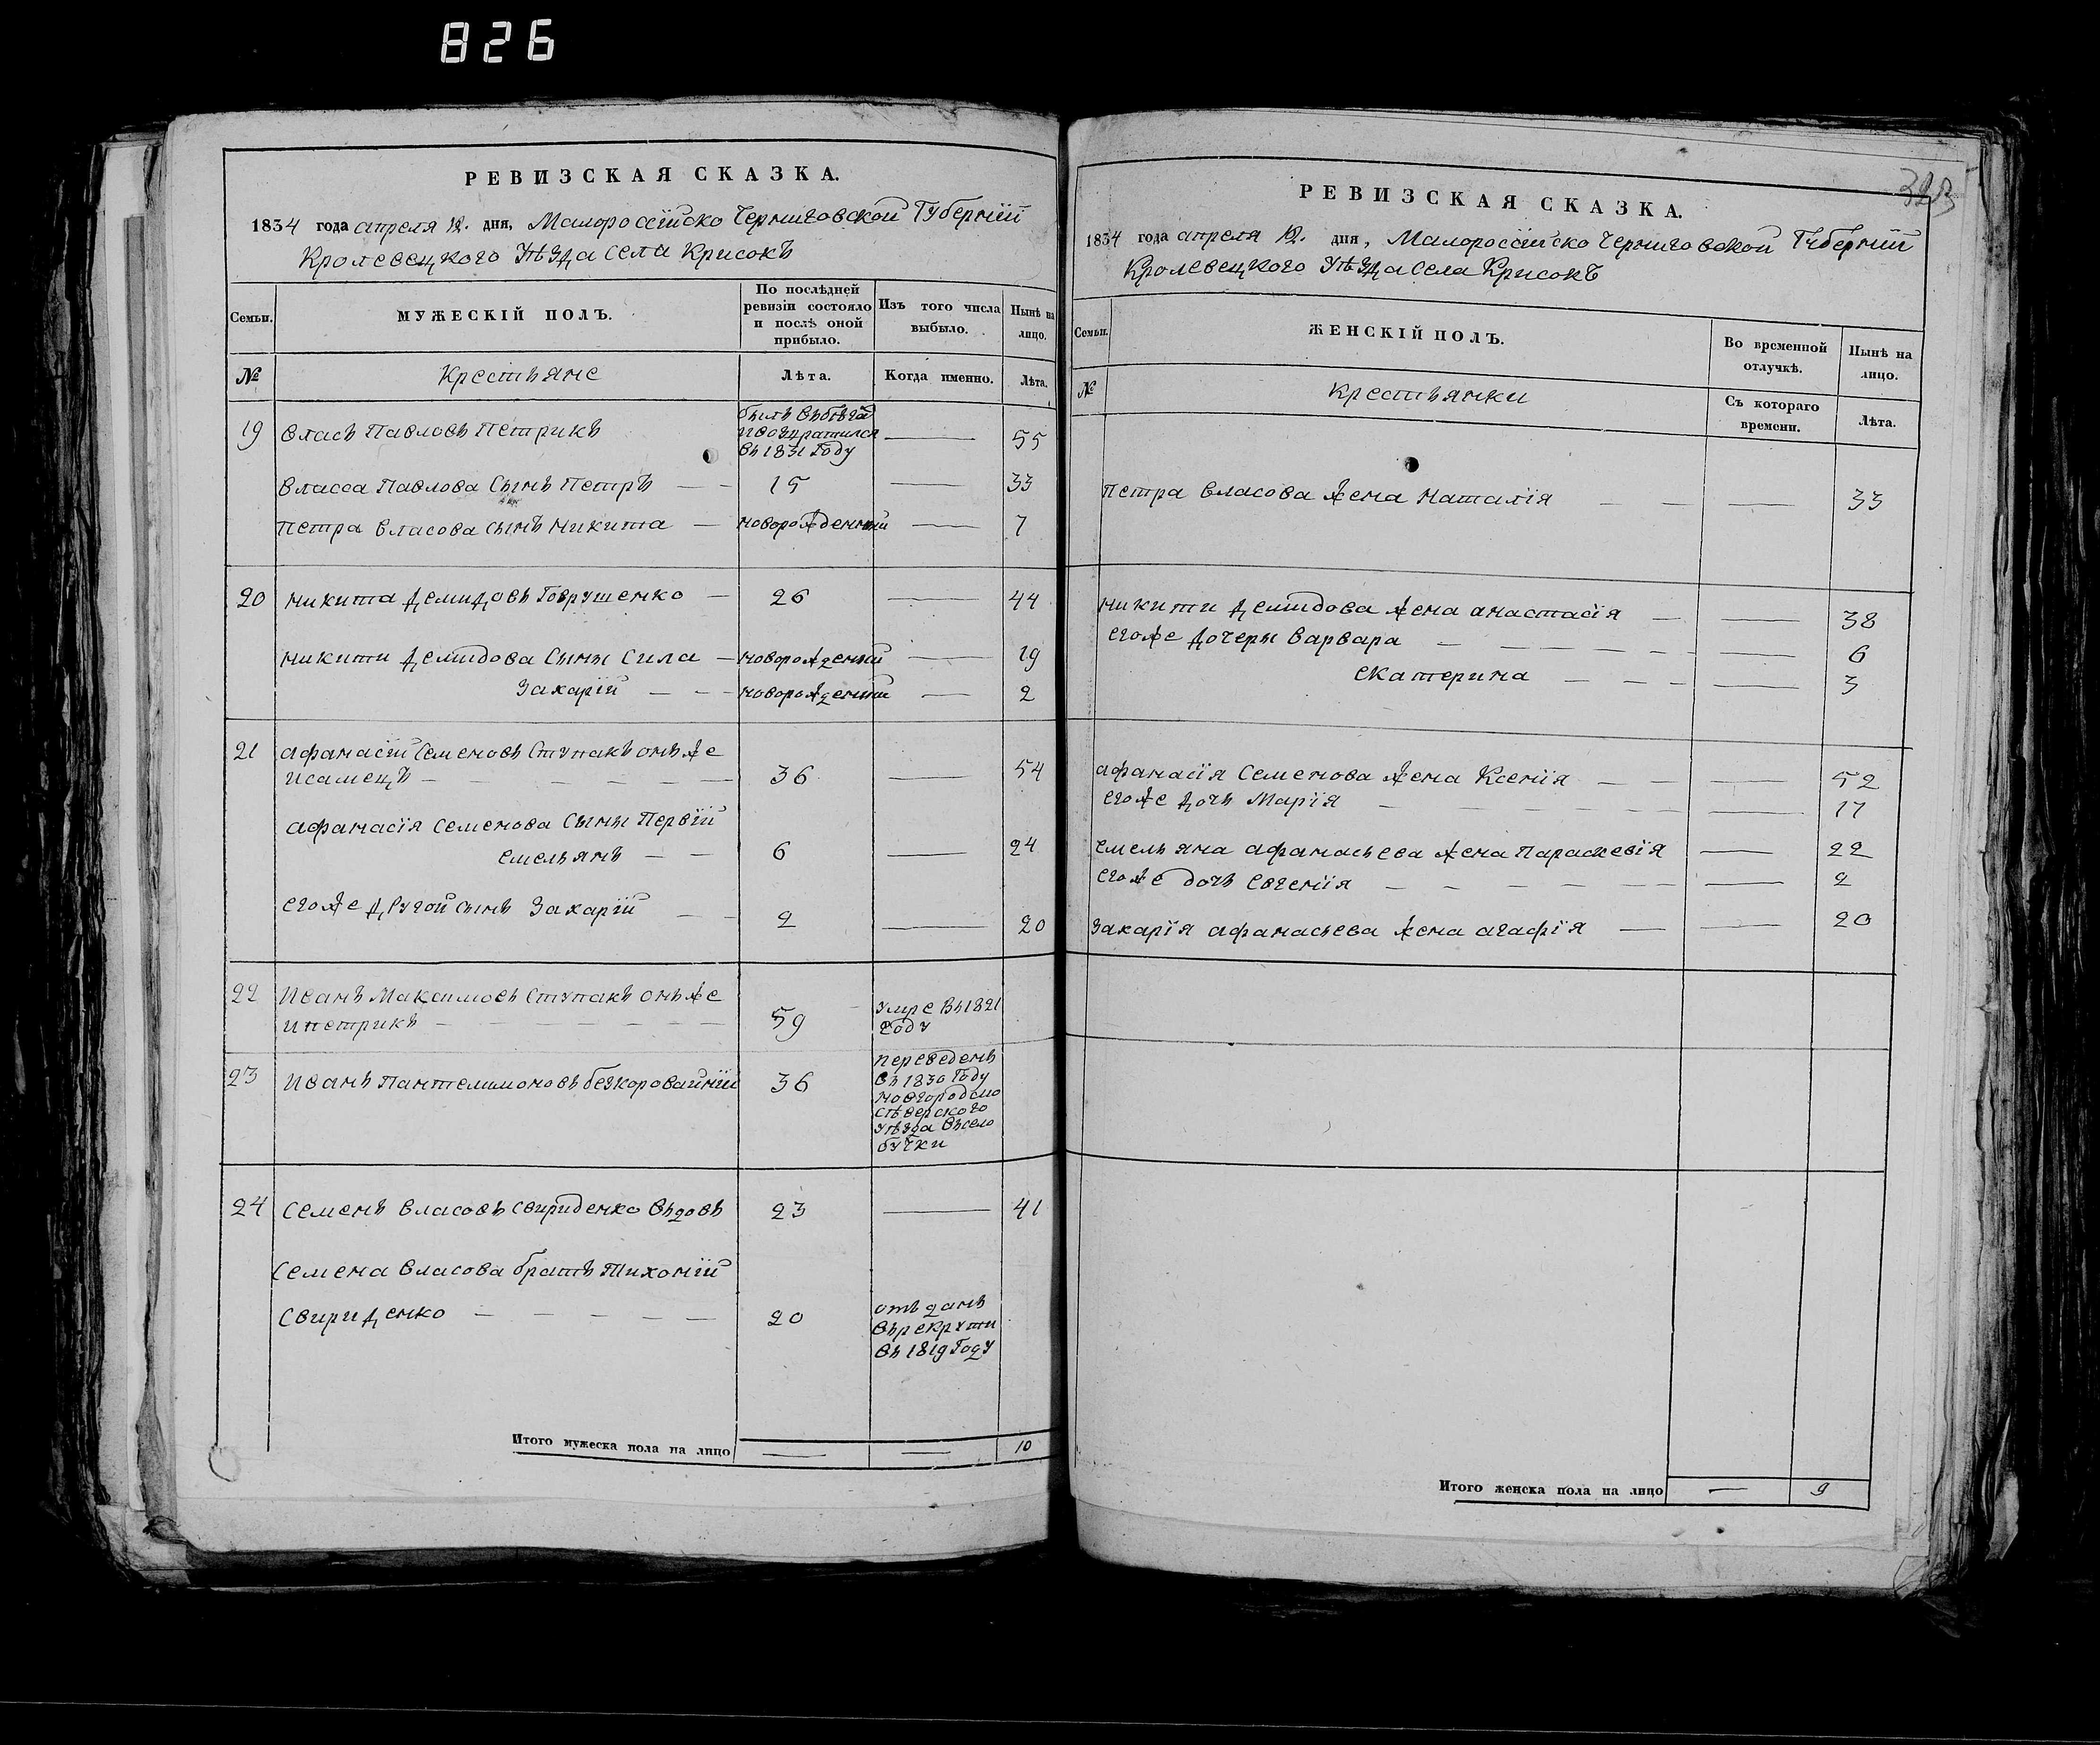 826
РЕВИЗСКАЯ СКАЗКА.
1834 года апреля 12. дня, Малоросіийско Черниговской Губерніи
Кролевецкого Уѣзда Села Крисокъ
Семьи.
МУЖЕСКІЙ ПОЛЪ.
По послѣдней ревизіи состояло и послѣ оной прибыло.
Изъ того числа выбыло.
Нынѣ на лицо.
№
Крестьяне
Лѣта.
Когда именно.
Лѣта.
19 Власъ Павловъ Петрикъ
былъ въ бѣгах
и возвратился
въ 1831 Году
55
Власса Павлова Сынъ Петръ 15 33
Петра Власова сынъ Никита новорожденный 7
20 Никита Демидовъ Говрушенко 26 44
Никити Демидова Сыны Сила новорожденный 19
Захарій новорожденный 2
21 Афанасій Семеновъ Ступакъ онъже
Исаменцъ 36 54
Афанасія Семенова Сыны Первій
Емельянъ 6 24
Егоже Другой сынъ Захарій 2 20
22 Иванъ Максимовъ Ступакъ онъже
Ипетрикъ 59
умре въ 1821
году
23 Иванъ Пантелимоновъ безкоровайній 36
переведенъ
въ 1830 Году
Новгородсно
сѣверского
уѣзда въ село
бучки
24 Семенъ Власовъ свириденко Вьдовъ 23 41
Семена Власова братъ Тихоній
Свириденко 20
отъданъ
въ рекрути
въ 1819 Году
Итого мужеска пола на лицо 10
РЕВИЗСКАЯ СКАЗКА.
1834 года апреля 12. дня, Малоросіийско Черниговской Губерніи
Кролевецкого Уѣзда Села Крисокъ
Семьи.
ЖЕНСКІЙ ПОЛЪ.
Во временной отлучкѣ.
Нынѣ на лицо.
№
Крестьянки
Съ котораго времени.
Лѣта.
Петра Власова жена Наталія 33
Никити Демидова жена Анастасія 38
Егоже Дочеры Варвара 6
Екатерина 3
Афанасія Семенова жена Ксенія 52
Егоже Дочь Марія 17
Емельяна Афанасьева жена Параскевія 22
Егоже дочь Евгенія 2
Захарія Афанасьева жена агафія 20
Итого женска пола на лицо 9